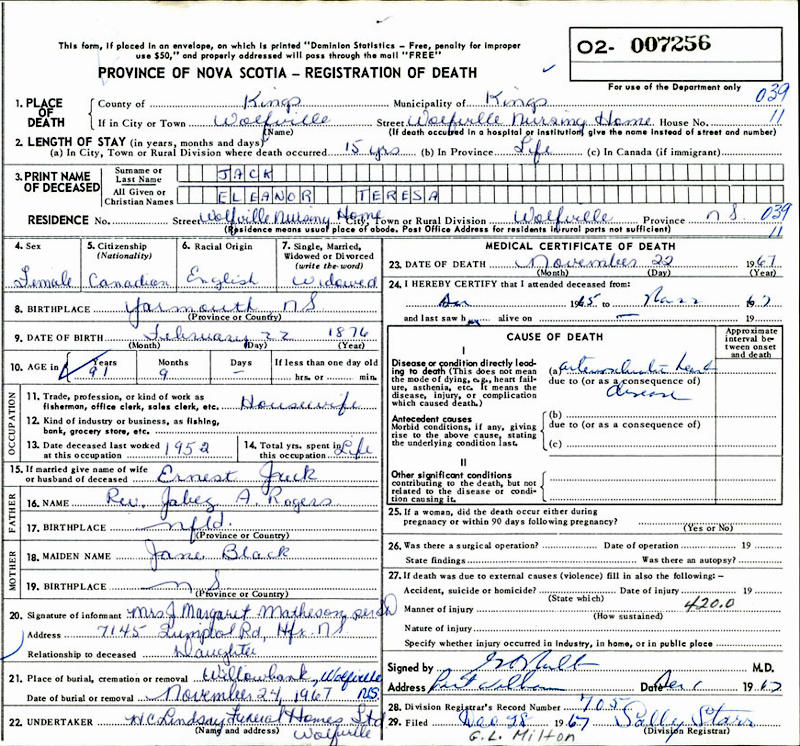 This form, if placed in an envelope, on which is printed "Dominion Statistics – Free, penalty for improper
use $50," and properly addressed will pass through the mail "FREE"
PROVINCE OF NOVA SCOTIA – REGISTRATION OF DEATH
O2- 007256
For use of the Department only
1. PLACE OF DEATH
County of Kings Municipality of Kings 039
If in City or Town Wolfville Street Wolfville Nursing Home House No. 11
(Name) (If death occurred in a hospital or institution, give the name instead of street and number)
2. LENGTH OF STAY (in years, months and days)
(a) In City, Town or Rural Division where death occurred 15 yrs (b) In Province Life (c) In Canada (if immigrant)
3. PRINT NAME OF DECEASED
Surname or Last Name JACK
All Given or Christian Names ELEANOR TERESA
RESIDENCE No. Street Wolfville Nursing Home City, Town or Rural Division Wolfville Province NS 039
(Residence means usual place of abode. Post Office Address for residents in rural parts not sufficient) 11
4. Sex Female
5. Citizenship (Nationality) Canadian
6. Racial Origin English
7. Single, Married, Widowed or Divorced (write the word) Widowed
8. BIRTHPLACE Yarmouth NS
(Province or Country)
9. DATE OF BIRTH February 22 1876
(Month) (Day) (Year)
10. AGE in Years 91 Months 9 Days – If less than one day old
hrs. or min.
OCCUPATION
11. Trade, profession, or kind of work as
fisherman, office clerk, sales clerk, etc. Housewife
12. Kind of industry or business, as fishing,
bank, grocery store, etc.
13. Date deceased last worked at this occupation 1952
14. Total yrs. spent in this occupation Life
15. If married give name of wife
or husband of deceased Ernest Jack
FATHER
16. NAME Rev. Jabez A. Rogers
17. BIRTHPLACE Nfld.
(Province or Country)
MOTHER
18. MAIDEN NAME Jane Black
19. BIRTHPLACE NS
(Province or Country)
20. Signature of informant Mrs J Margaret Matheson
Address 7145 Rd, Hfx. NS
Relationship to deceased Daughter
21. Place of burial, cremation or removal Willowbank, Wolfville
Date of burial or removal November 24, 1967 NS.
22. UNDERTAKER H C Lindsay Funeral Homes Ltd
(Name and address) Wolfville
MEDICAL CERTIFICATE OF DEATH
23. DATE OF DEATH November 22 1967
(Month) (Day) (Year)
24. I HEREBY CERTIFY that I attended deceased from:
1965 to 67
and last saw h alive on – 19
CAUSE OF DEATH
Approximate interval between onset and death
I
Disease or condition directly leading to death (This does not mean the mode of dying, e.g., heart failure, asthenia, etc. It means the disease, injury, or complication which caused death.)
(a) arteriosclerotic heart
due to (or as a consequence of)
disease
Antecedent causes
Morbid conditions, if any, giving rise to the above cause, stating the underlying condition last.
(b)
due to (or as a consequence of)
(c)
II
Other significant conditions
contributing to the death, but not related to the disease or condition causing it.
25. If a woman, did the death occur either during
pregnancy or within 90 days following pregnancy?
(Yes or No)
26. Was there a surgical operation? Date of operation 19
State findings Was there an autopsy?
27. If death was due to external causes (violence) fill in also the following:–
Accident, suicide or homicide? Date of injury 19
(State which) 420.0
Manner of injury
(How sustained)
Nature of injury
Specify whether injury occurred in industry, in home, or in public place
Signed by M.D.
Address Port Williams Date Dec 1 1967
28. Division Registrar's Record Number 705
29. Filed Dec 28 1967 Sally Starr
(Division Registrar)
G.L. Milton